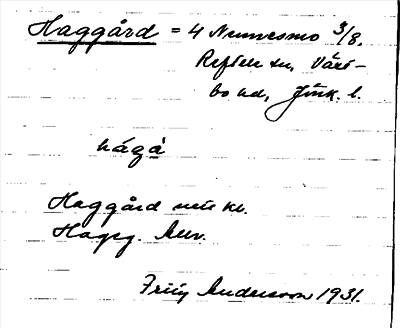 Haggård = 4 Nennesmo 3/8.
Reftele sn, Väst-
bo hd, Jönk. l.
hágå
Haggård
Hagg.
Fritz Andersson 1931.